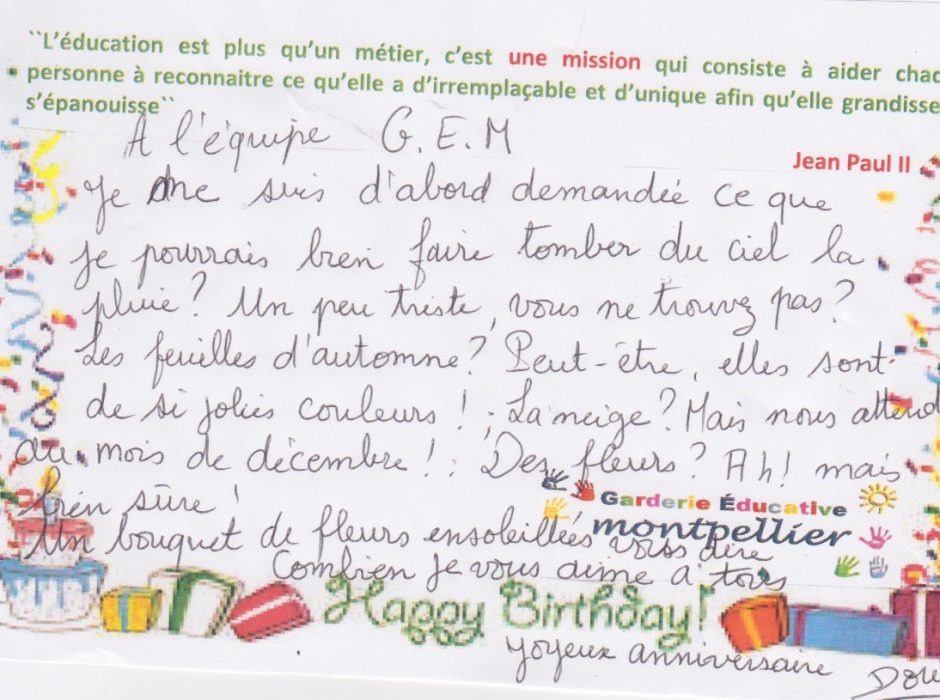 ``L'éducation est plus qu'un métier, c'est une mission qui consiste à aider chac
personne à reconnaitre ce qu'elle a d'irremplaçable et d'unique afin qu'elle grandisse
s'épanouisse``
A l'équipe G.E.M
Jean Paul II
Je me suis d'abord demandée ce que
je pourrais bien faire tomber du ciel la
pluie? Un peu triste, vous ne trouvez pas?
Les feuilles d'automne? Peut-être, elles sont
de si jolies couleurs! La neige? Mais nous attend
au mois de décembre! Des fleurs? Ah! mais
bien sûre!
Garderie Éducative
montpellier
Un bouquet de fleurs ensoleillées vous dire
Combien je vous aime a tous
Happy Birthday!
Yoyeux anniversaire